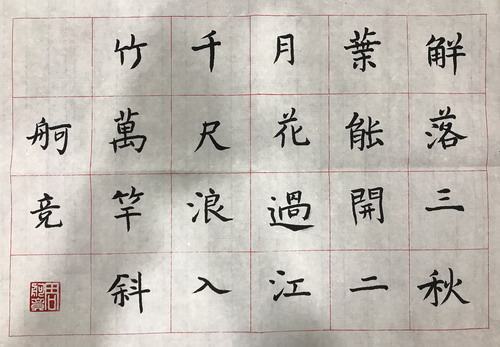 觧落三秋
葉能開二
月花過江
千尺浪入
竹萬竿斜
舸竞